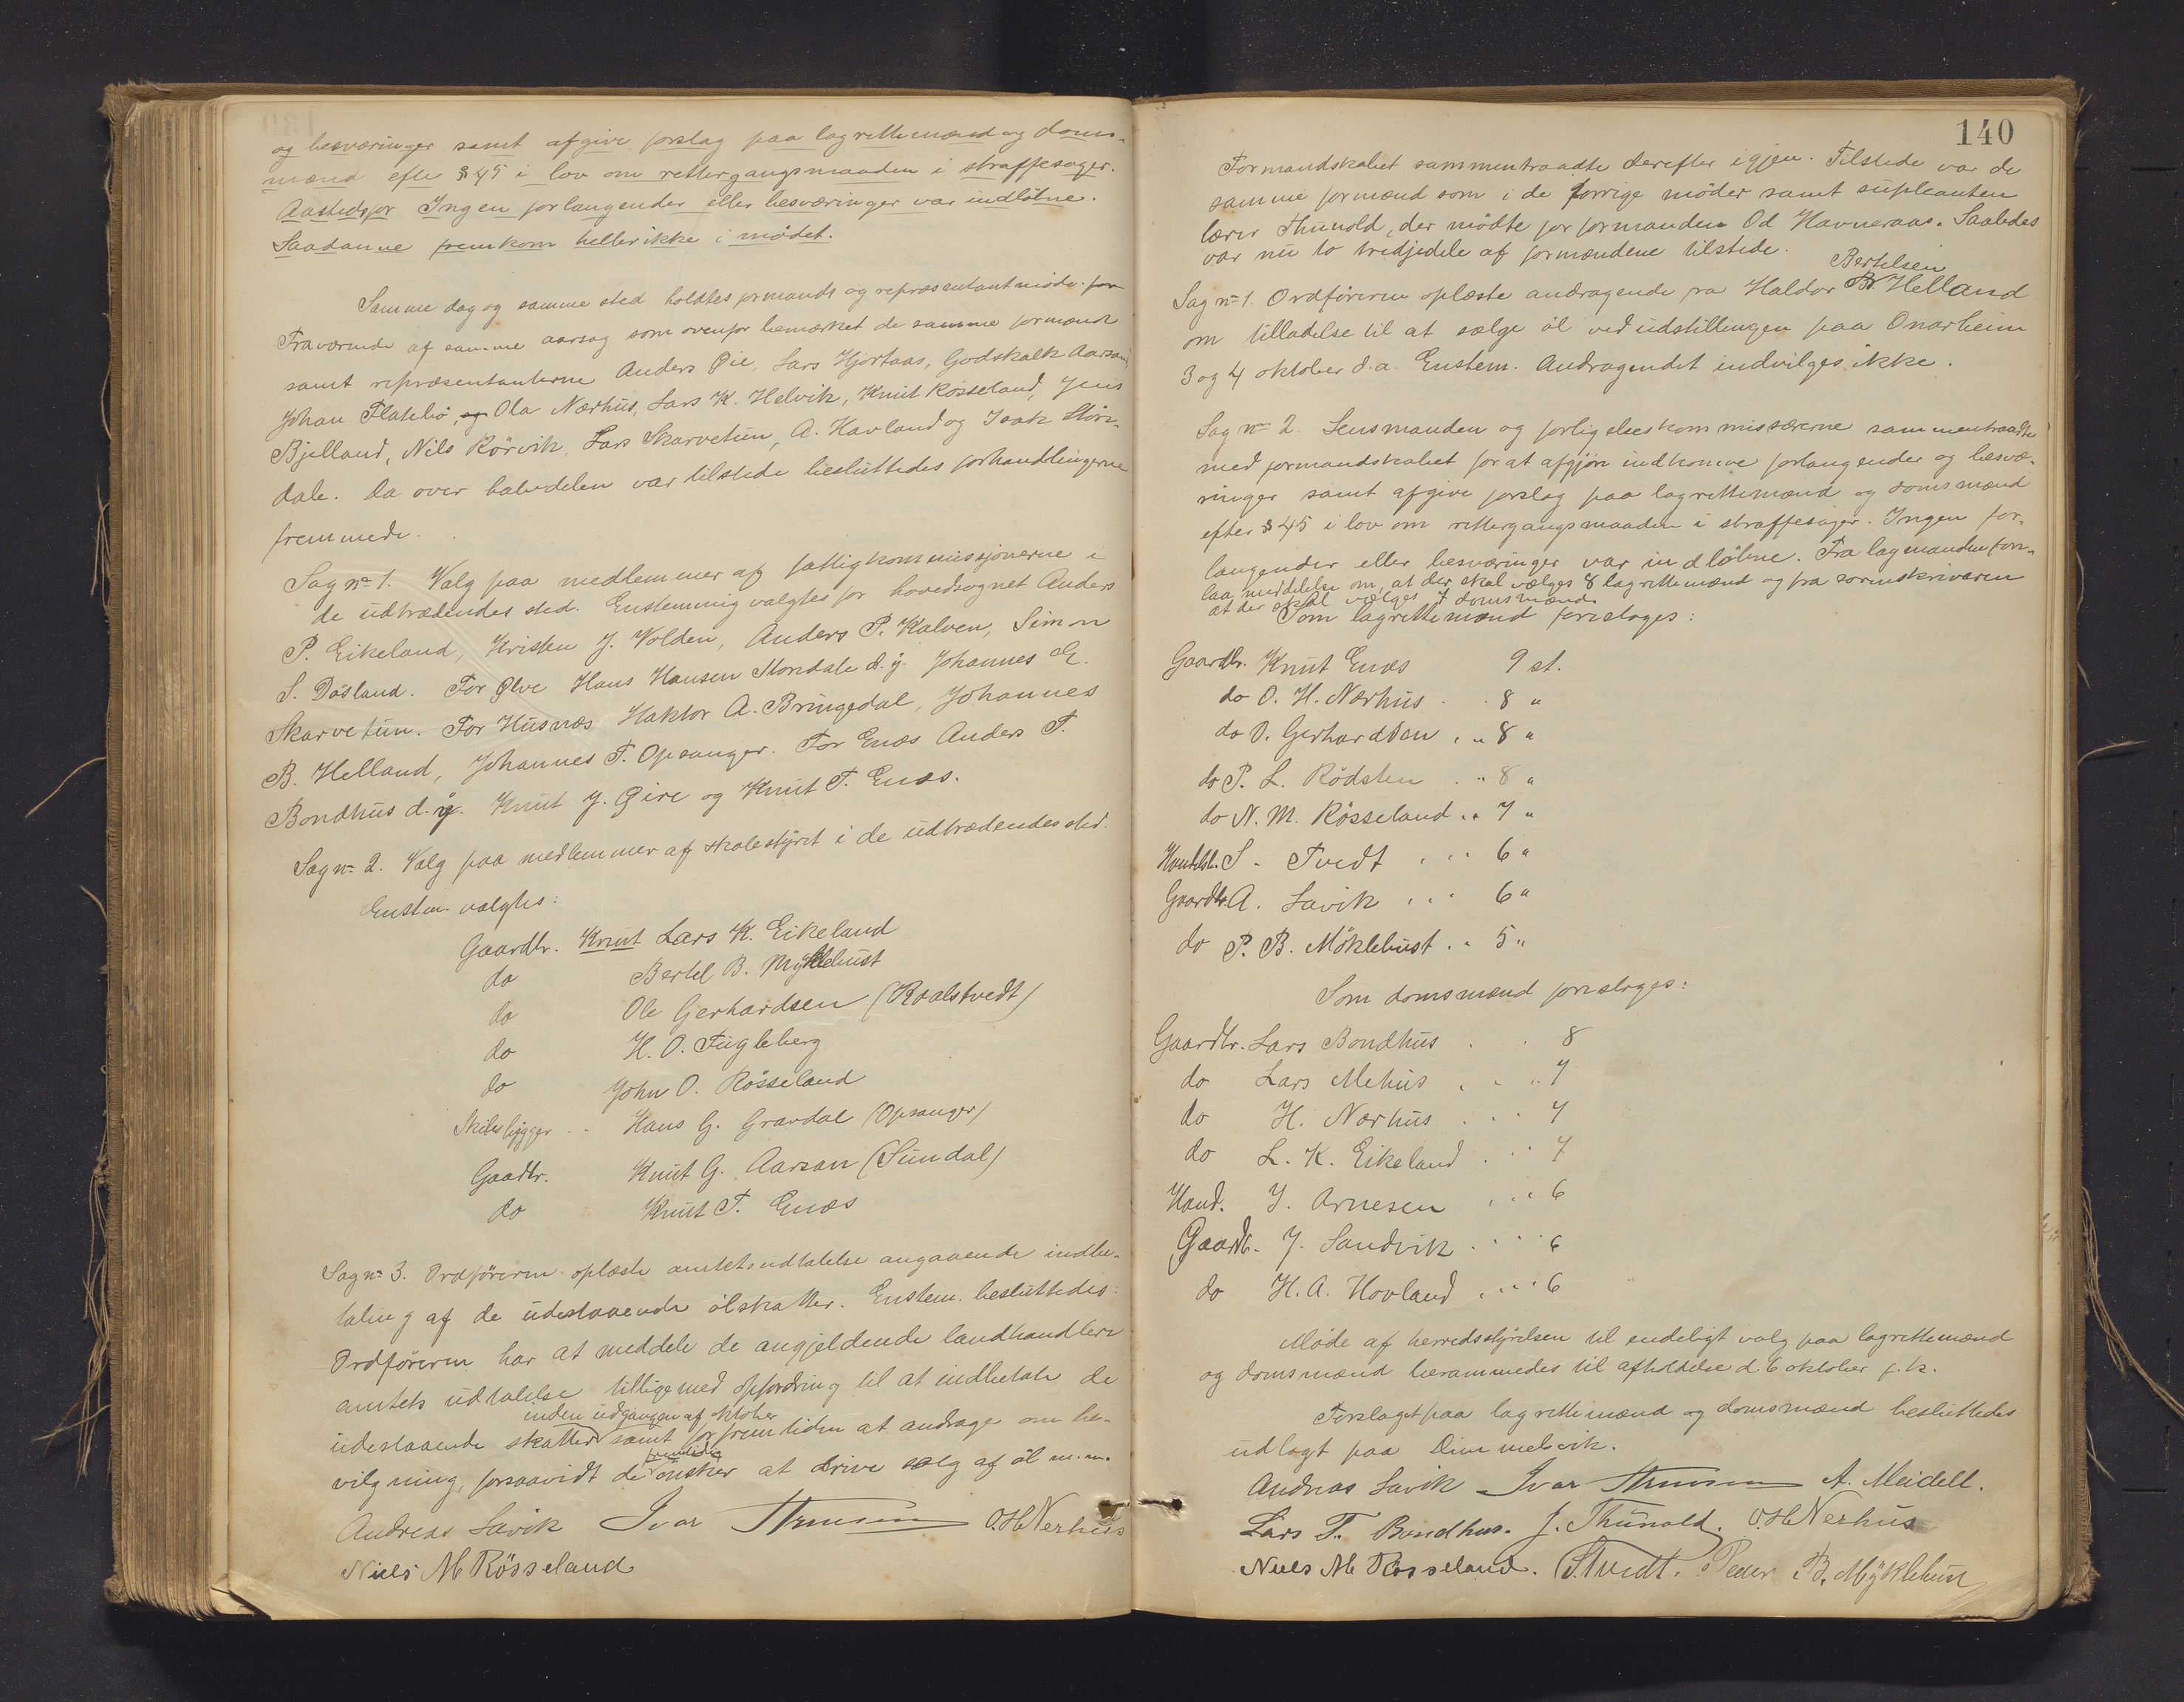 og besværinger samt afgive forslag paa lagrettemænd og doms-
mænd efter § 45 i lov om rettergangsmaaden i straffesager.
Aastedsfor Ingen forlangender eller besværinger var indløbne.
Saadanne fremkom heller ikke i mødet.
Samme dag og samme sted holdtes formands og repræsentantmøde. for
Fraværende af samme aarsag som ovenfor bemærket de samme formænd
samt repræsentanterne Anders Øie, Lars Hjortaas, Godskalk Aarsand
Johan Flatebø, og Ola Nærhus, Lars K. Helvik, Knut Røsseland, Jens
Bjelland, Nils Rørvik, Lars Skarvetun, A. Havland og Isak Stor-
dale. Da over halvdelen var tilstede besluttedes forhandlingerne
fremmede.
Sag n: 1. Valg paa medlemmer af fattigkommissjonerne i
de udtrædendes sted. Enstemmig valgtes for hovedsognet Anders
P. Eikeland, Kristen J. Volden, Anders P. Kalven, Simon
S. Døsland. For Ølve Hans Hansen Stordale d.y. Johannes E.
Skarvetun. For Husnæs Haktor A. Bringedal, Johannes
B. Helland, Johannes T. Opsanger. For Enæs Anders T.
Bondhus d.y. Knut J. Øire og Knut T. Enæs.
Sag n: 2. Valg paa medlemmer af skolestyret i de udtrædendes sted.
Enstem. valgtes:
Gaardbr. Knut Lars K. Eikeland
do Bertel B. Myklebust
do Ole Gerhardsen (Roalstvedt)
do H. O. Fugleberg
do John O. Røsseland
Skibsbygger Hans G. Gravdal (Opsanger)
Gaardbr. Knut G. Aarsan (Sundal)
do Knut T. Enæs
Sag n: 3. Ordføreren oplæste amtets udtalelse angaaende indbe-
taling af de udestaaende ølskatter. Enstem. besluttedes:
Ordføreren har at meddele de angjeldende landhandlere
amtets udtalelse tilligemed opfordring til at indbetale de
inden udgangen af oktober
udestaaende skatter samt for fremtiden at andrage om be-
fremtidig
vilgning, forsaavidt de ønsker at drive salg af øl m.m.
Andreas Søvik Ivar O.H. Nerhus
Niels M Røsseland
140
Formandskabet sammentraadte derefter igjen. Tilstede var de
samme formænd som i de forrige møder samt supleanten
lærer Thunold, der mødte for formanden Od Havneraas. Saaledes
var nu to tredjedele af formændene tilstede.
Bertelsen
Sag n: 1. Ordføreren oplæste andragende fra Haldor Br. Helland
om tilladelse til at sælge øl ved udstillingen paa Onarheim
3 og 4 oktober d.a. Enstem. Andragendet indvilges ikke.
Sag n: 2. Lensmanden og forligelseskommissærerne sammentraadte
med formandskabet for at afgjøre indkomne forlangender og besvæ-
ringer samt afgive forslag paa lagrettemænd og domsmænd
efter § 45 i lov om rettergangsmaaden i straffesager. Ingen for-
langender eller besværinger var indløbne. Fra lagmanden fore-
laa meddelelse om, at der skal vælges 8 lagrettemænd og fra sorenskriveren
at der skal vælges 7 domsmænd.
Som lagrettemænd foresloges:
Gaardbr. Knut Enæs 9 st.
do O. H. Nærhus . . 8 "
do O. Gerhardsen . " 8 "
do P. L. Rødsten . " 8 "
do N. M. Røsseland . . 7 "
Handelsb. S. Tvedt . . . 6 "
Gaardbr. A. Søvik . . . 6 "
do P. B. Møklebust . . 5 "
Som domsmænd foresloges:
Gaardbr. Lars Bondhus . . 8
do Lars Mehus . . . 7
do H. Nærhus . . . 7
do L. K. Eikeland . . . 7
Hand. J. Arnesen . . . 6
Gaardb. J. Sandvik . . . . 6
do H. A. Hovland . . . 6
Møde af herredsstyrelsen til endeligt valg paa lagrettemænd
og domsmænd berammedes til afholdelse d. 6 oktober f. k.
Forslaget paa lagrettemænd og domsmænd besluttedes
udlagt paa Dimmelsvik.
Andreas Søvik Ivar A. Meidell.
Lars T. Bondhus. J. Thunold. O.H. Nerhus
Niels M Røsseland. S. Tvedt. Peder B. Myklebust